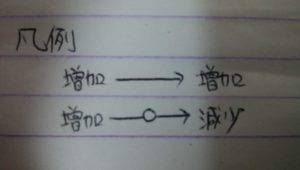 凡例
増加 ⟶ 増加
増加 —○→ 減少